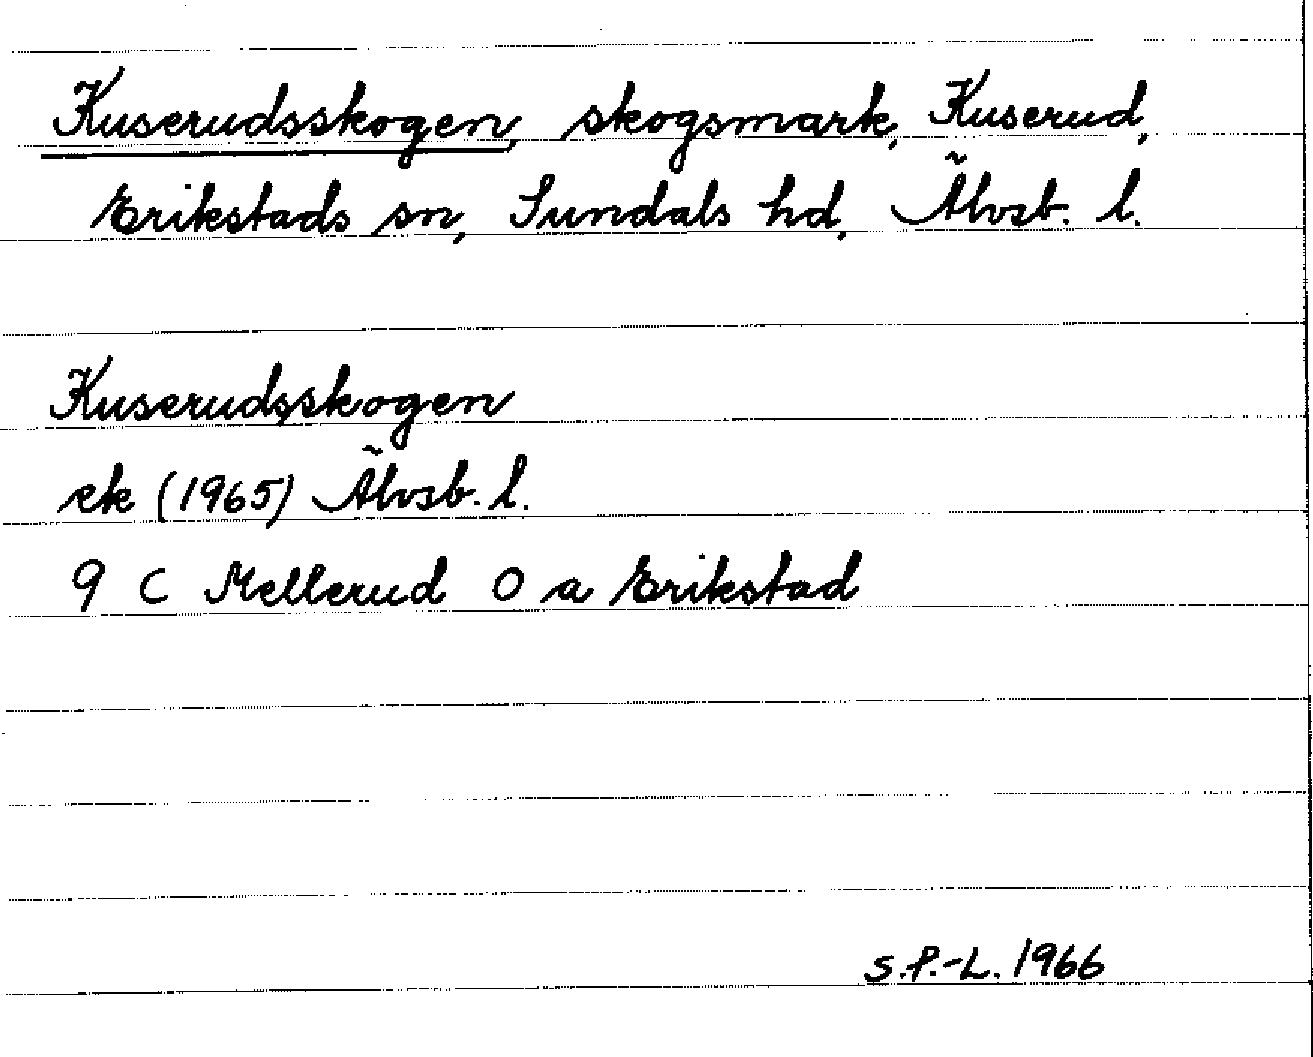 Kuserudsskogen, skogsmark, Kuserud,
Erikstads sn, Sundals hd, Älvsb. l.
Kuserudsskogen
ek (1965) Älvsb. l.
9 C Mellerud O a Erikstad
S.P.-L. 1966